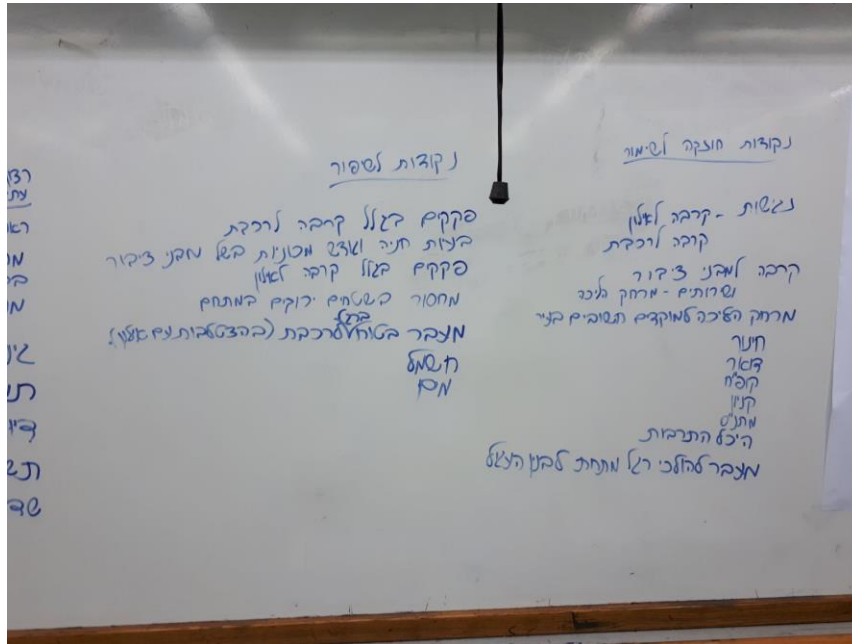 נקודות חוזקה לשימור
נגישות - קרבה לאלון
קרבה לרכבת
קרבה למבני ציבור
ושרותים - מרחק הליכה
מרחק הליכה למוקדים חשובים בעיר
חינוך
דואר
קופ"ח
קניון
מתנ"ס
היכל התרבות
מעבר להולכי רגל מתחת לבנין העגול
נקודות לשפור
פקקים בגלל קרבה לרכבת
בעיות חניה ועומס מכוניות בשל מבני ציבור
פקקים בגלל קרבה לאלון
מחסור בשטחים ירוקים במתחם
ברגל
מעבר בטוח לרכבת (בהצטלבות עם אלון)
חשמל
מים